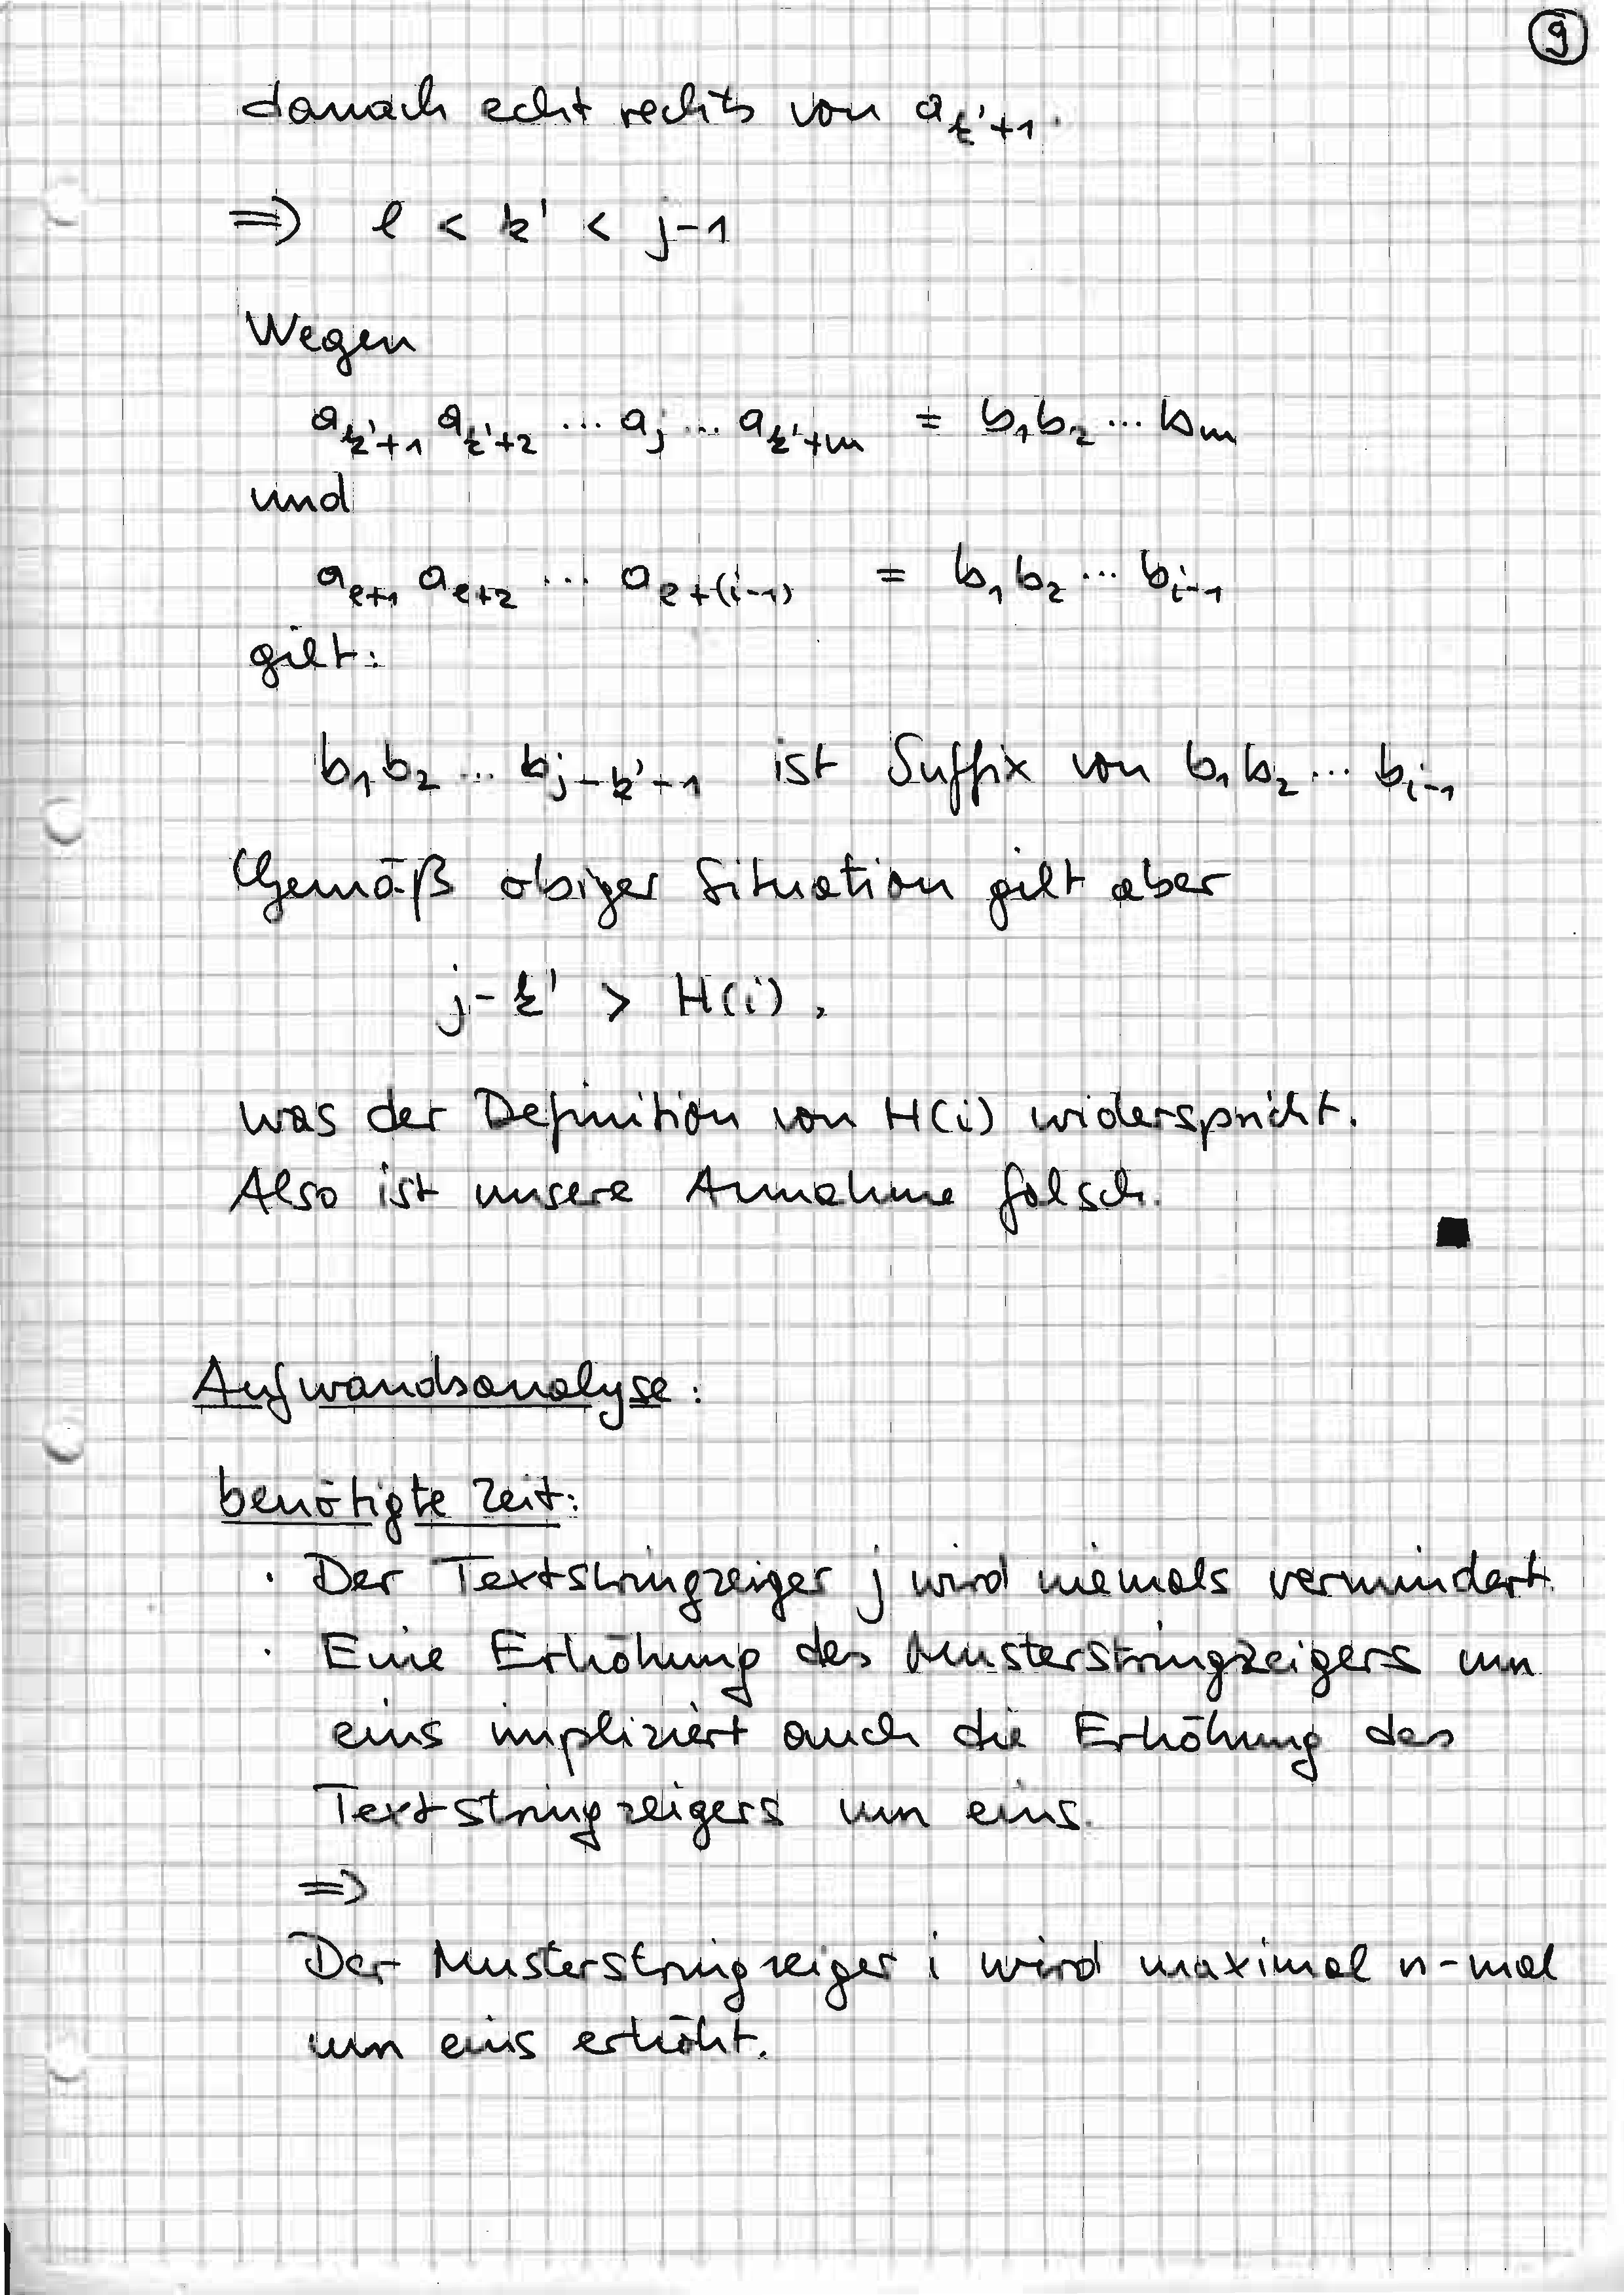 9
danach echt rechts von a_{k'+1}.
⇒ l < k' < j-1
Wegen
a_{k'+1} a_{k'+2} ... a_j ... a_{k'+m} = b_1 b_2 ... b_m
und
a_{l+1} a_{l+2} ... a_{l+(i-1)} = b_1 b_2 ... b_{i-1}
gilt:
b_1 b_2 ... b_{j-k'-1} ist Suffix von b_1 b_2 ... b_{i-1}
Gemäß obiger Situation gilt aber
j-k' > H(i),
was der Definition von H(i) widerspricht.
Also ist unsere Annahme falsch.
Aufwandsanalyse:
benötigte Zeit:
· Der Textstringzeiger j wird niemals vermindert.
· Eine Erhöhung des Musterstringzeigers um
eins impliziert auch die Erhöhung des
Textstringzeigers um eins.
⇒
Der Musterstringzeiger i wird maximal n-mal
um eins erhöht.